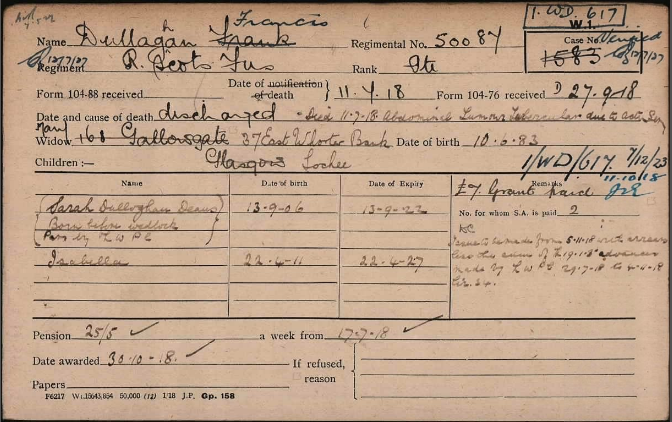 1. WD. 617
W.1.
Francis
Name Dullaghan Frank Regimental No. 50087 Case No. Verified
1583
12/7/27 Regiment R. Scots Fus Rank Pte
Form 104-88 received Date of notification of death } 11.7.18 Form 104-76 received D 27.9.18
Date and cause of death discharged - Died 11-7-18. Abdominal Tubercular due to
Mary
Widow 168 Gallowgate 37 East Wharter Bank Date of birth 10.6.83
Children :— Glasgow Lochee 1/WD/617 7/12/23
11-10-18
Name Date of birth Date of Expiry Remarks
£7. Grant paid
Sarah Dullaghan 13-9-06 13-9-22 No. for whom S.A. is paid 2
Born before wedlock
Pass by L W P C
Issue to be made from 5-11-18 with arrears
less the sum of £19.1.8 advances
made by L W P C 29-7-18 to 4-11-18
Isabella 22-4-11 22-4-27
Pension 25/5 a week from 17-7-18
Date awarded 30-10-18. If refused, reason
Papers
F6217 Wt.15643,854 50,000 (12) 1/18 J.P. Gp. 158